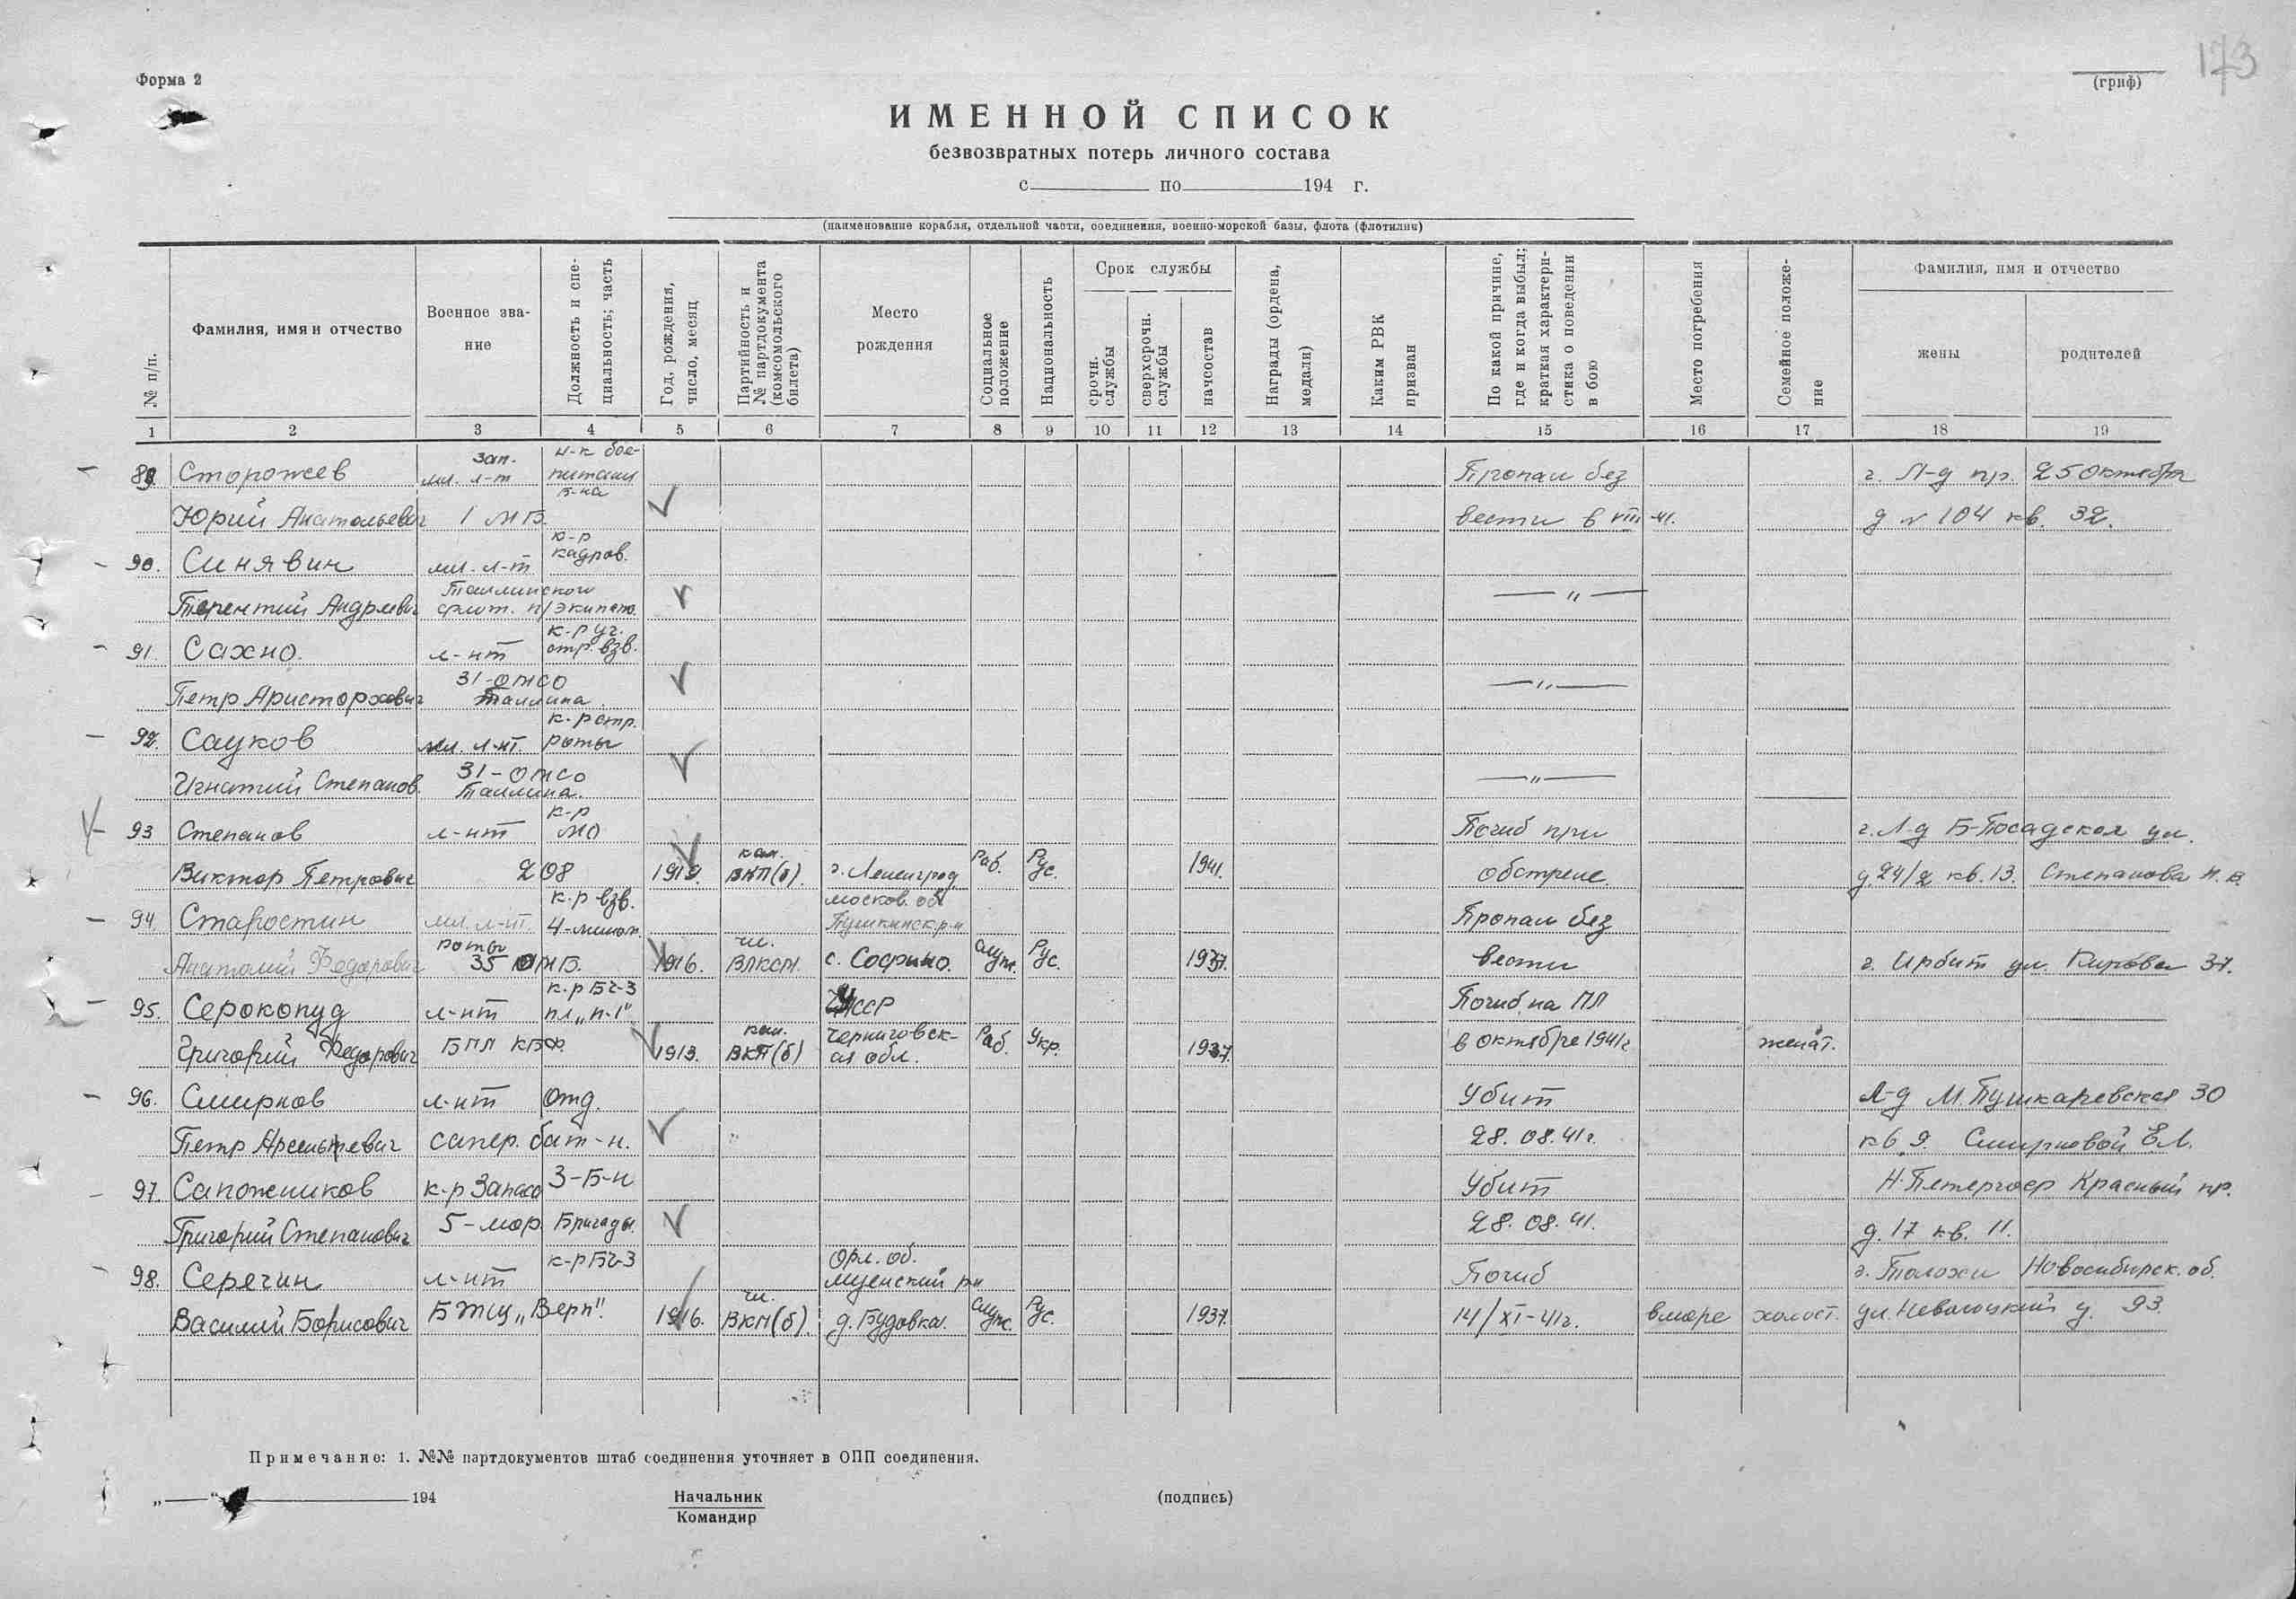 173
Форма 2
(гриф)
ИМЕННОЙ СПИСОК
безвозвратных потерь личного состава
с по 194 г.
(наименование корабля, отдельной части, соединения, военно-морской базы, флота (флотилии)
№ п/п.
Фамилия, имя и отчество
Военное звание
Должность и специальность; часть
Год, рождения, число, месяц
Партийность и № партдокумента (комсомольского билета)
Место рождения
Социальное положение
Национальность
Срок службы
срочн. службы
сверхсрочн. службы
начсостав
Награды (ордена, медали)
Каким РВК призван
По какой причине, где и когда выбыл; краткая характеристика о поведении в бою
Место погребения
Семейное положение
Фамилия, имя и отчество
жены
родителей
1 2 3 4 5 6 7 8 9 10 11 12 13 14 15 16 17 18 19
зап. н-к бое-
89 Сторожев мл. л-т питания Пропал без г. Л-д пр. 25 Октября
б-на
Юрий Анатольевич 1 МБ. вести в VIII-41. д № 104 кв. 32.
к-р
90. Синявин мл. л-т кадров.
Таллинского
Терентий Андреевич флот. п/экипажа. — " —
к-р уч.
91. Сахно. л-нт стр. взв.
31-ОЖСО
Петр Аристархович Таллина — " —
к-р стр.
92. Сауков мл. л-нт. роты
31-ОЖСО
Игнатий Степанов. Таллина. — " —
к-р
93 Степанов л-нт МО Погиб при г. Л-д Б-Посадская ул.
Виктор Петрович 208 1912. кан. ВКП(б). г. Ленинград Раб. Рус. 1941. обстреле. д. 24/2 кв. 13. Степанова Н. В.
к-р взв. москов. об
94. Старостин мл. л-нт. 4-мином. Пушкинск р-н Пропал без
роты
Анатолий Федорович 35 ОМБ. 1916. чл. ВЛКСМ. с. Софрино. служ. Рус. 1937. вести г. Ирбит ул. Кирова 37.
к-р БЧ-3
95. Серокопуд л-нт пл „п-1" УССР Погиб на ПЛ
Григорий Федорович БПЛ КБФ. 1913. кан. ВКП(б) Черниговск-ая обл. Раб. Укр. 1937. в октябре 1941г женат.
96. Смирнов л-нт Отд. Убит Л-д М. Пушкаревская 30
Петр Арсентьевич сапер. бат-н. 28. 08. 41 г. кв 9. Смирновой Е. Л.
97. Сапожников к-р запаса 3-Б-н Убит Н. Петергоф Красный пр.
Григорий Степанович 5-мор. Бригады. 28. 08. 41. д. 17 кв. 11.
к-р БЧ-3 Орл. об.
98. Серегин л-нт Мценский р-н Погиб Новосибирск. об.
Василий Борисович БТЩ „Верп". 1916. чл. ВКП(б). д. Будовка. служ. Рус. 1937. 14/XI-41 г. в море холост. 93.
Примечание: 1. №№ партдокументов штаб соединения уточняет в ОПП соединения.
„ — " 194
Начальник
Командир
(подпись)